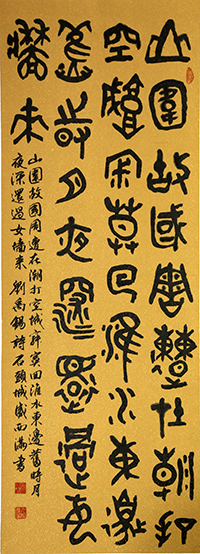 山圍故國周遭在潮打
空城寂寞回淮水東邊
舊時月夜深還過女
牆來
山圍故國周遭在潮打空城寂寞回淮水東邊舊時月
夜深還過女墙来 劉禹錫詩石頭城 西滿書